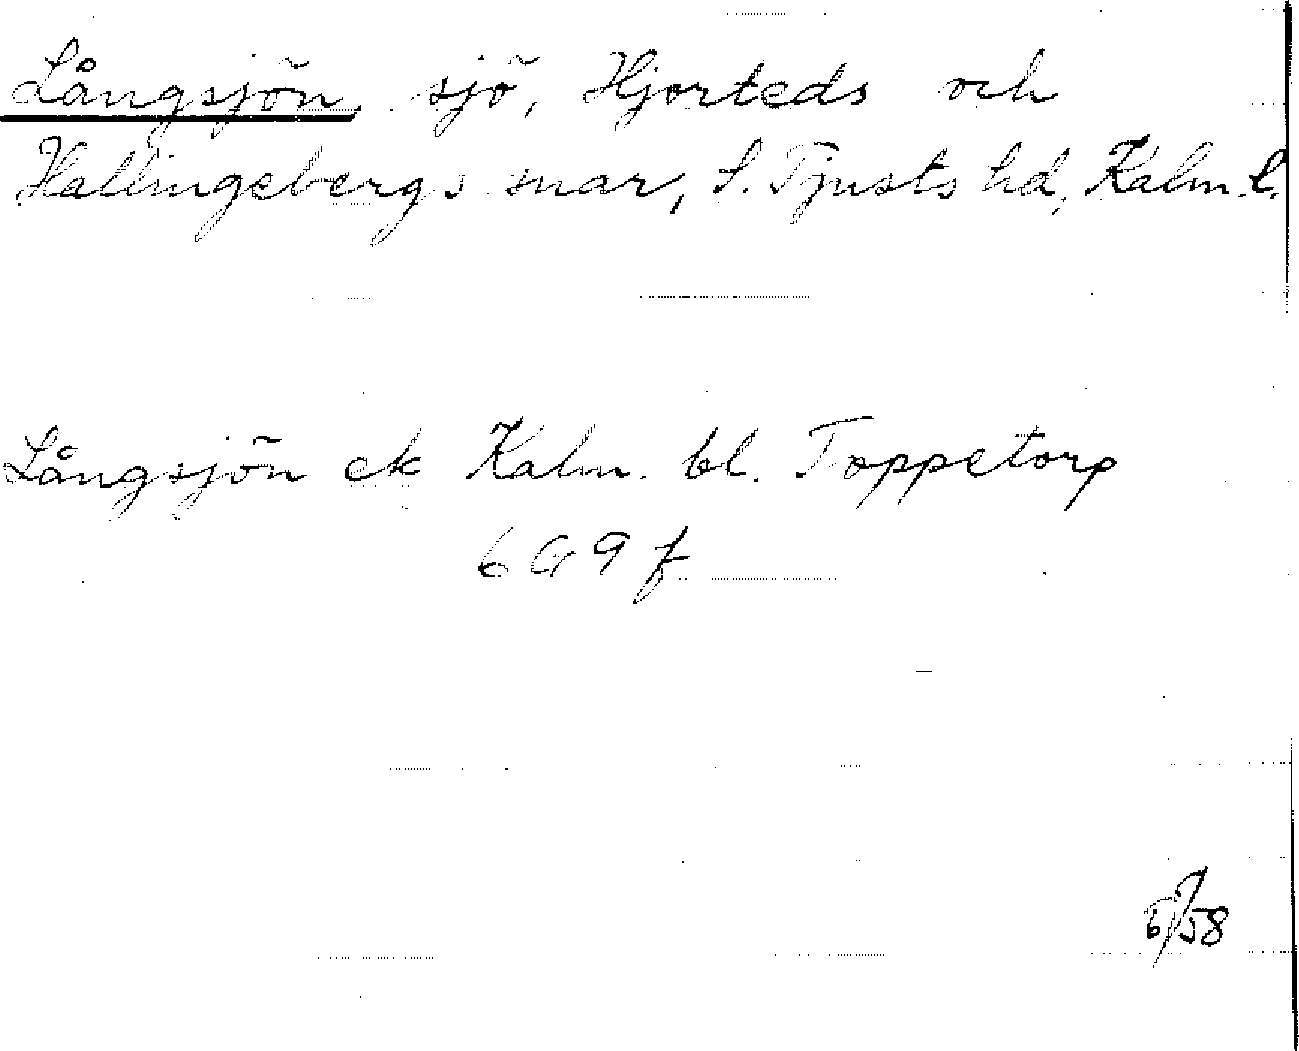 Långsjön, sjö, Hjorteds och
Hallingebergs snar, S. Tjusts hd, Kalm. l.
Långsjön ek Kalm. bl. Toppetorp
6 G 9 f
5/58